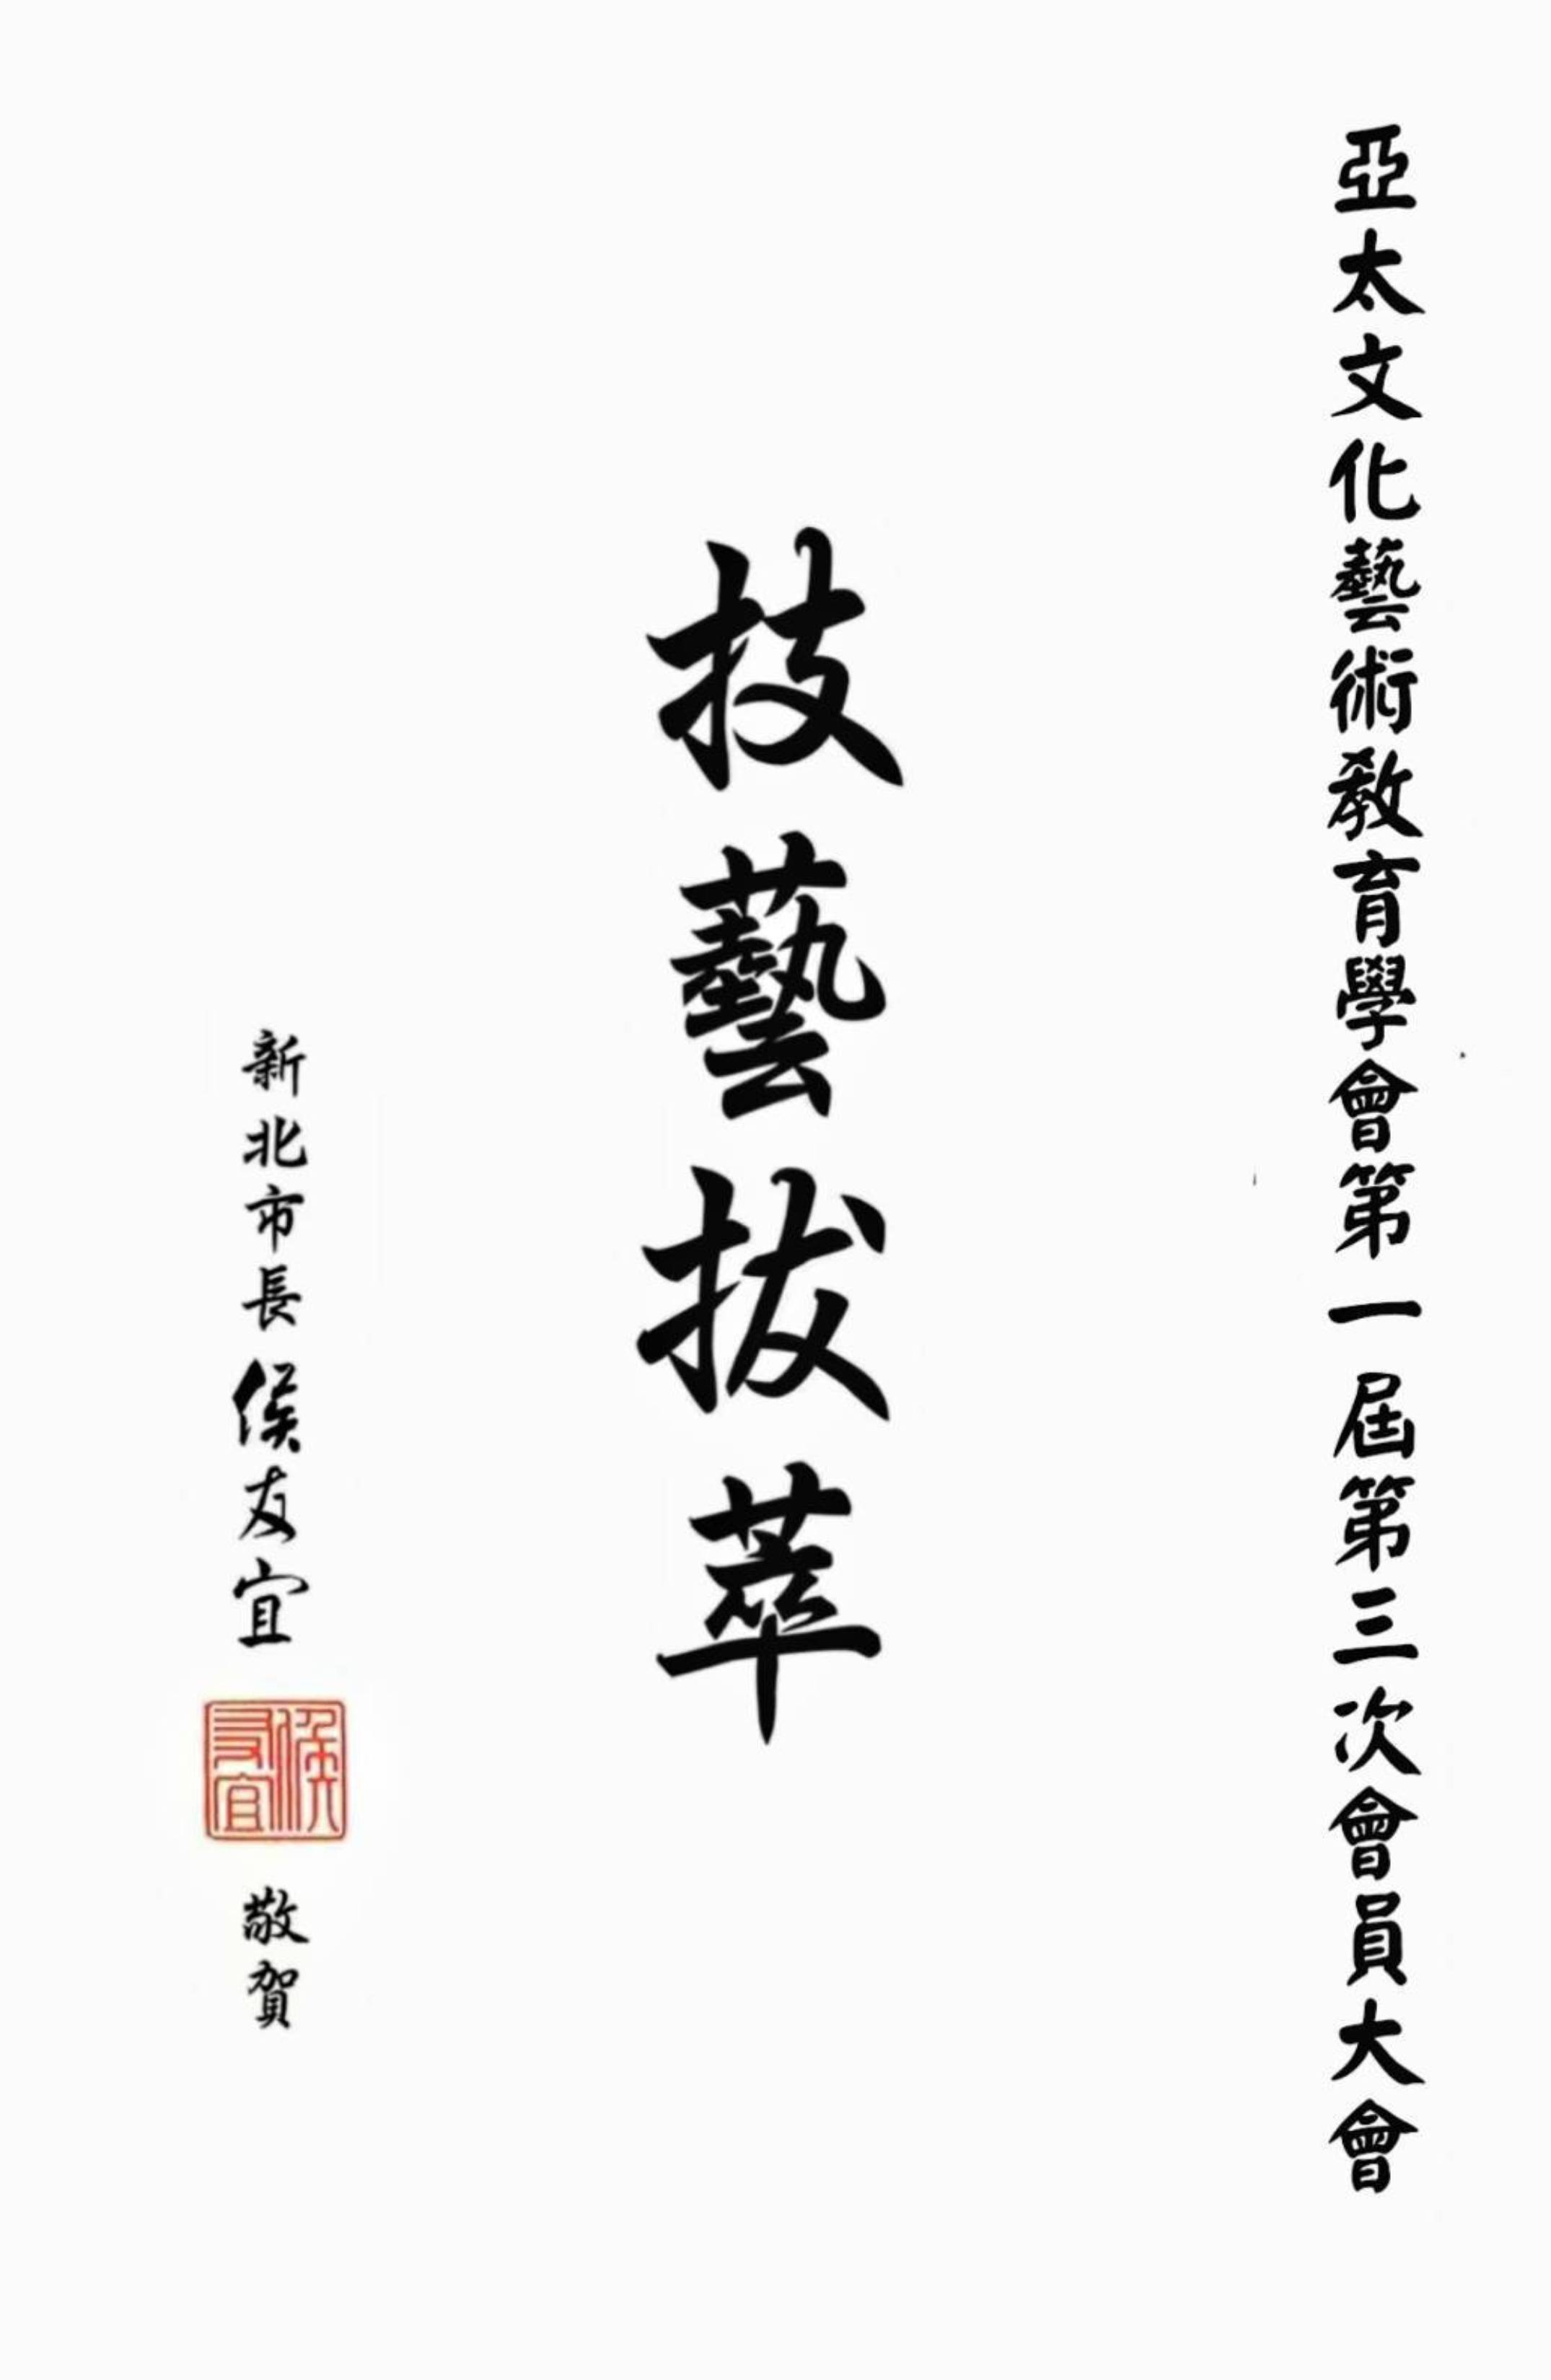 亞太文化藝術教育學會第一屆第三次會員大會
技藝拔萃
新北市長侯友宜
侯友宜
敬賀